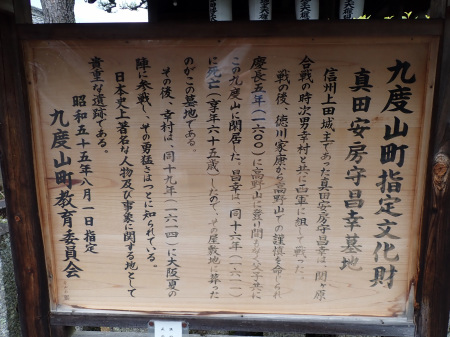 九度山町指定文化財
真田安房守昌幸墓地
信州上田城主であった真田安房守昌幸は、関ヶ原
合戦の時次男幸村と共に西軍に組して戦った。
戦の後、徳川家康から高野山での謹慎を命じられ
慶長五年(一六〇〇)に高野山に登り間もなく父子共に
この九度山に閑居した。昌幸は、同十六年(一六一一)
に死亡(享年六十五歳)したので、その屋敷地に葬った
のがこの墓地である。
その後、幸村は、同十九年(一六一四)に大阪夏の
陣に参戦し、その勇猛さはつとに知られている。
日本史上著名な人物及び事象に関する地として
貴重な遺跡である。
昭和五十五年八月一日指定
九度山町教育委員会